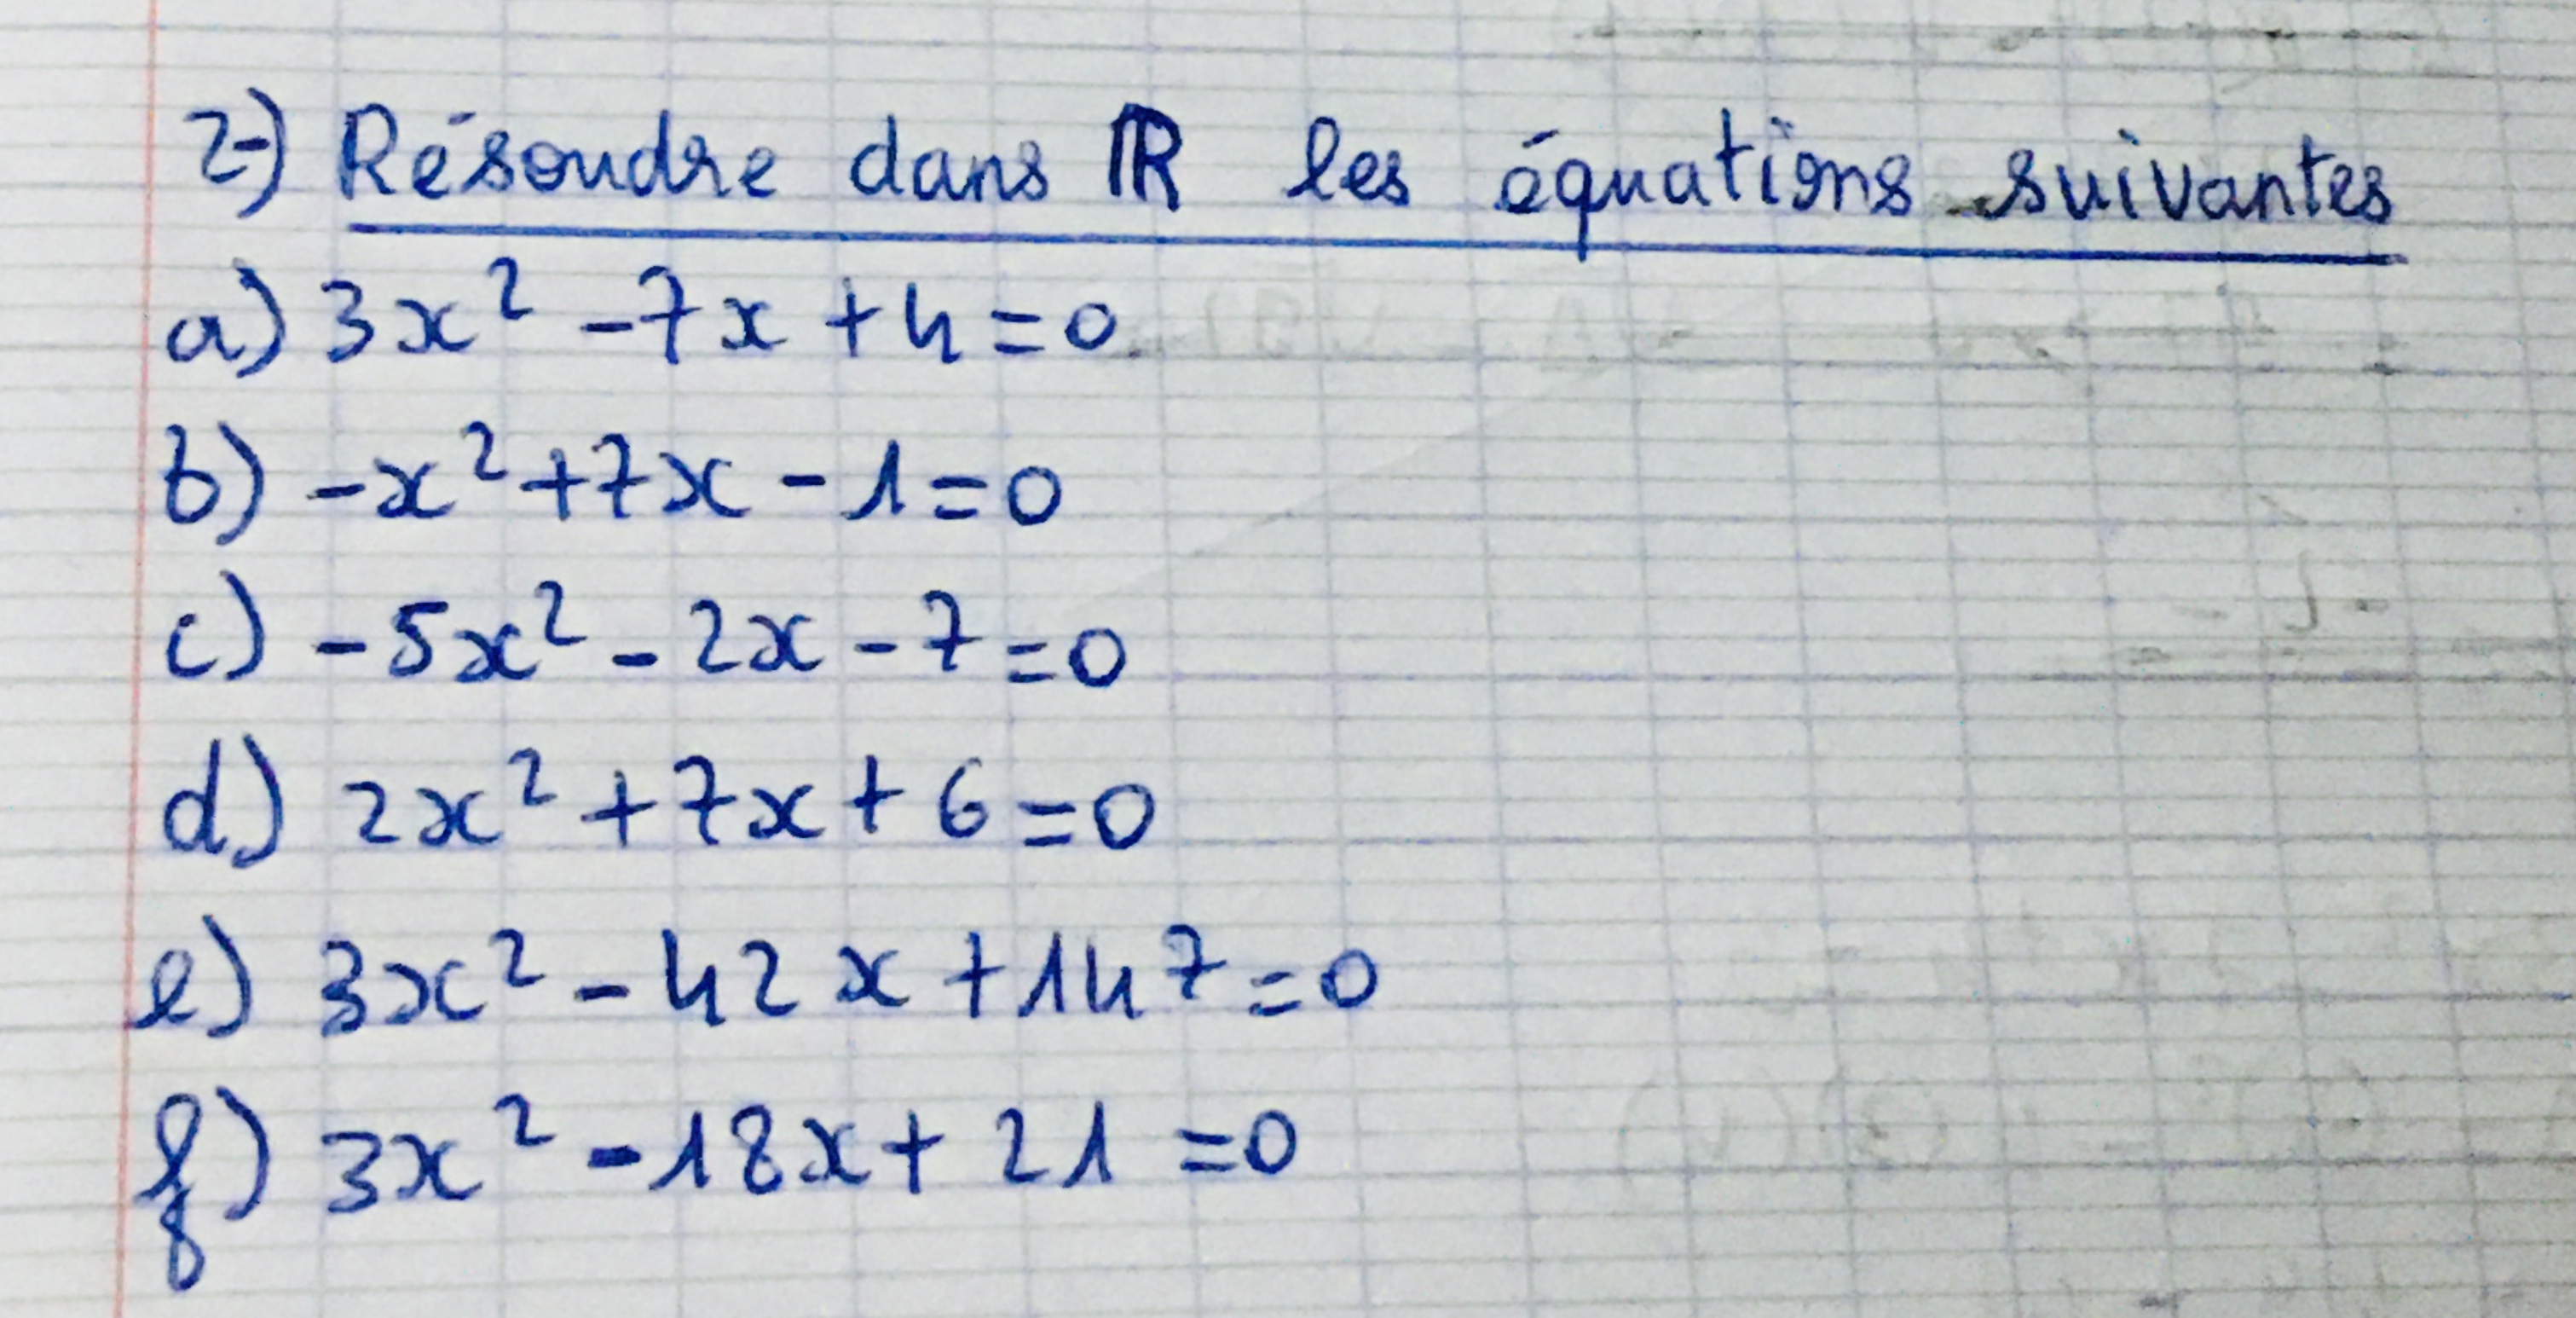 2-) Résoudre dans ℝ les équations suivantes
a) 3x² - 7x + 4 = 0
b) -x² + 7x - 1 = 0
c) -5x² - 2x - 7 = 0
d) 2x² + 7x + 6 = 0
e) 3x² - 42x + 147 = 0
f) 3x² - 18x + 21 = 0